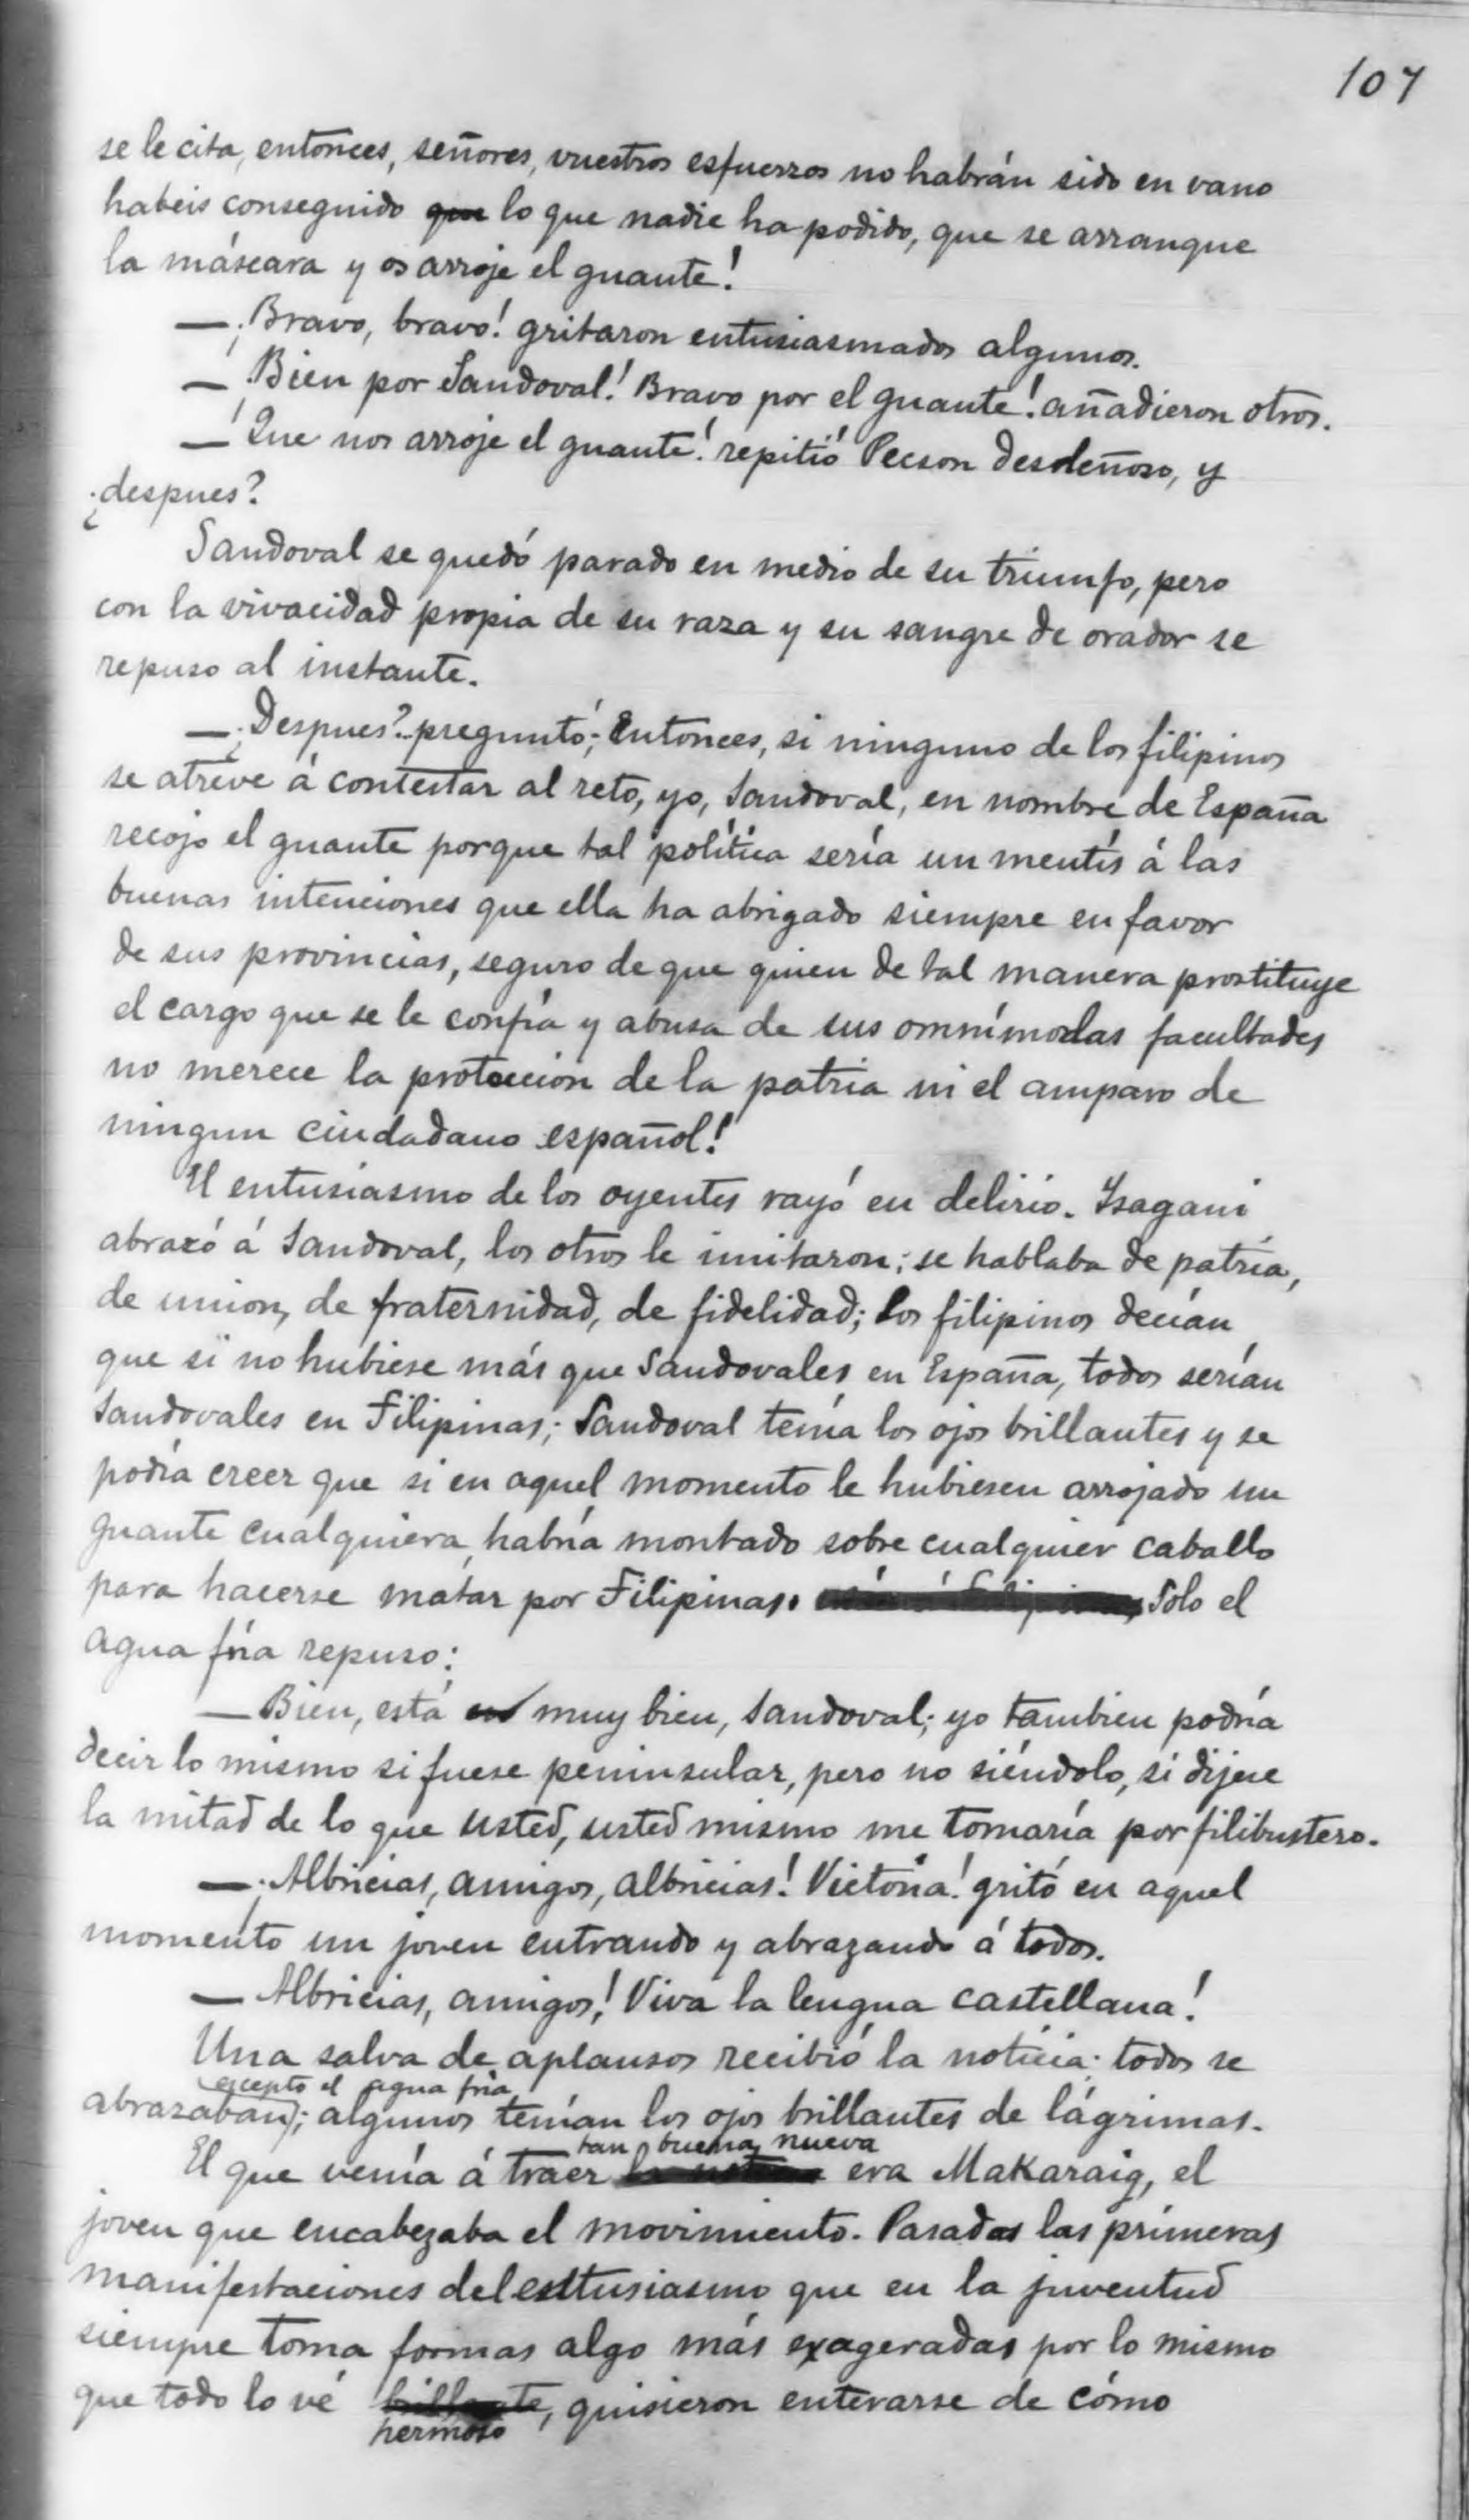 107
se le cita, entonces, señores, vuestros esfuerzos no habrán sido en vano
habeis conseguido que lo que nadie ha podido, que se arranque
la máscara y os arroje el guante!
— ¡Bravo, bravo! gritaron entusiasmados algunos.
— ¡Bien por Sandoval! Bravo por el guante! añadieron otros.
— ¡Que nos arroje el guante! repitió Pecson desdeñoso, y
¿despues?
Sandoval se quedó parado en medio de su triunfo, pero
con la vivacidad propia de su raza y su sangre de orador se
repuso al instante.
— ¿Despues? preguntó; Entonces, si ninguno de los filipinos
se atreve á contestar al reto, yo, Sandoval, en nombre de España
recojo el guante porque tal política sería un mentís á las
buenas intenciones que ella ha abrigado siempre en favor
de sus provincias, seguro de que quien de tal manera prostituye
el cargo que se le confía y abusa de sus omnímodas facultades
no merece la proteccion de la patria ni el amparo de
ningun ciudadano español!
El entusiasmo de los oyentes rayó en delirio. Isagani
abrazó á Sandoval, los otros le imitaron; se hablaba de patria,
de union, de fraternidad, de fidelidad; los filipinos decían
que si no hubiese más que Sandovales en España, todos serían
Sandovales en Filipinas; Sandoval tenía los ojos brillantes y se
podía creer que si en aquel momento le hubiesen arrojado un
guante cualquiera, habría montado sobre cualquier caballo
para hacerse matar por Filipinas. Solo el
agua fría repuso:
— Bien, está muy bien, Sandoval; yo tambien podría
decir lo mismo si fuese peninsular, pero no siéndolo, si dijese
la mitad de lo que usted, usted mismo me tomaría por filibustero.
— ¡Albricias, amigos, albricias! Victoria! gritó en aquel
momento un joven entrando y abrazando á todos.
— Albricias, amigos! Viva la lengua castellana!
Una salva de aplausos recibió la noticia; todos se
escepto el agua fría
abrazaban; algunos tenían los ojos brillantes de lágrimas.
tan buena nueva
El que venía á traer la noticia era Makaraig, el
joven que encabezaba el movimiento. Pasadas las primeras
manifestaciones del entusiasmo que en la juventud
siempre toma formas algo más exageradas por lo mismo
que todo lo vé brillante, quisieron enterarse de cómo
hermoso